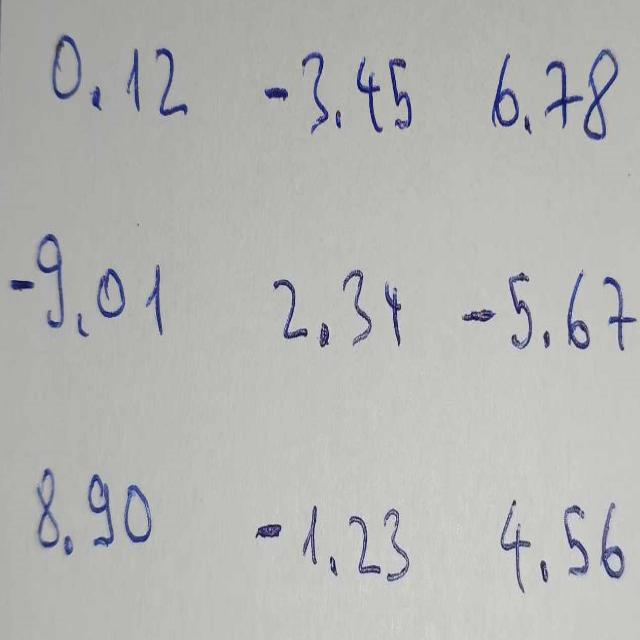 0.12 -3.45 6.78
-9.01 2.34 -5.67
8.90 -1.23 4.56